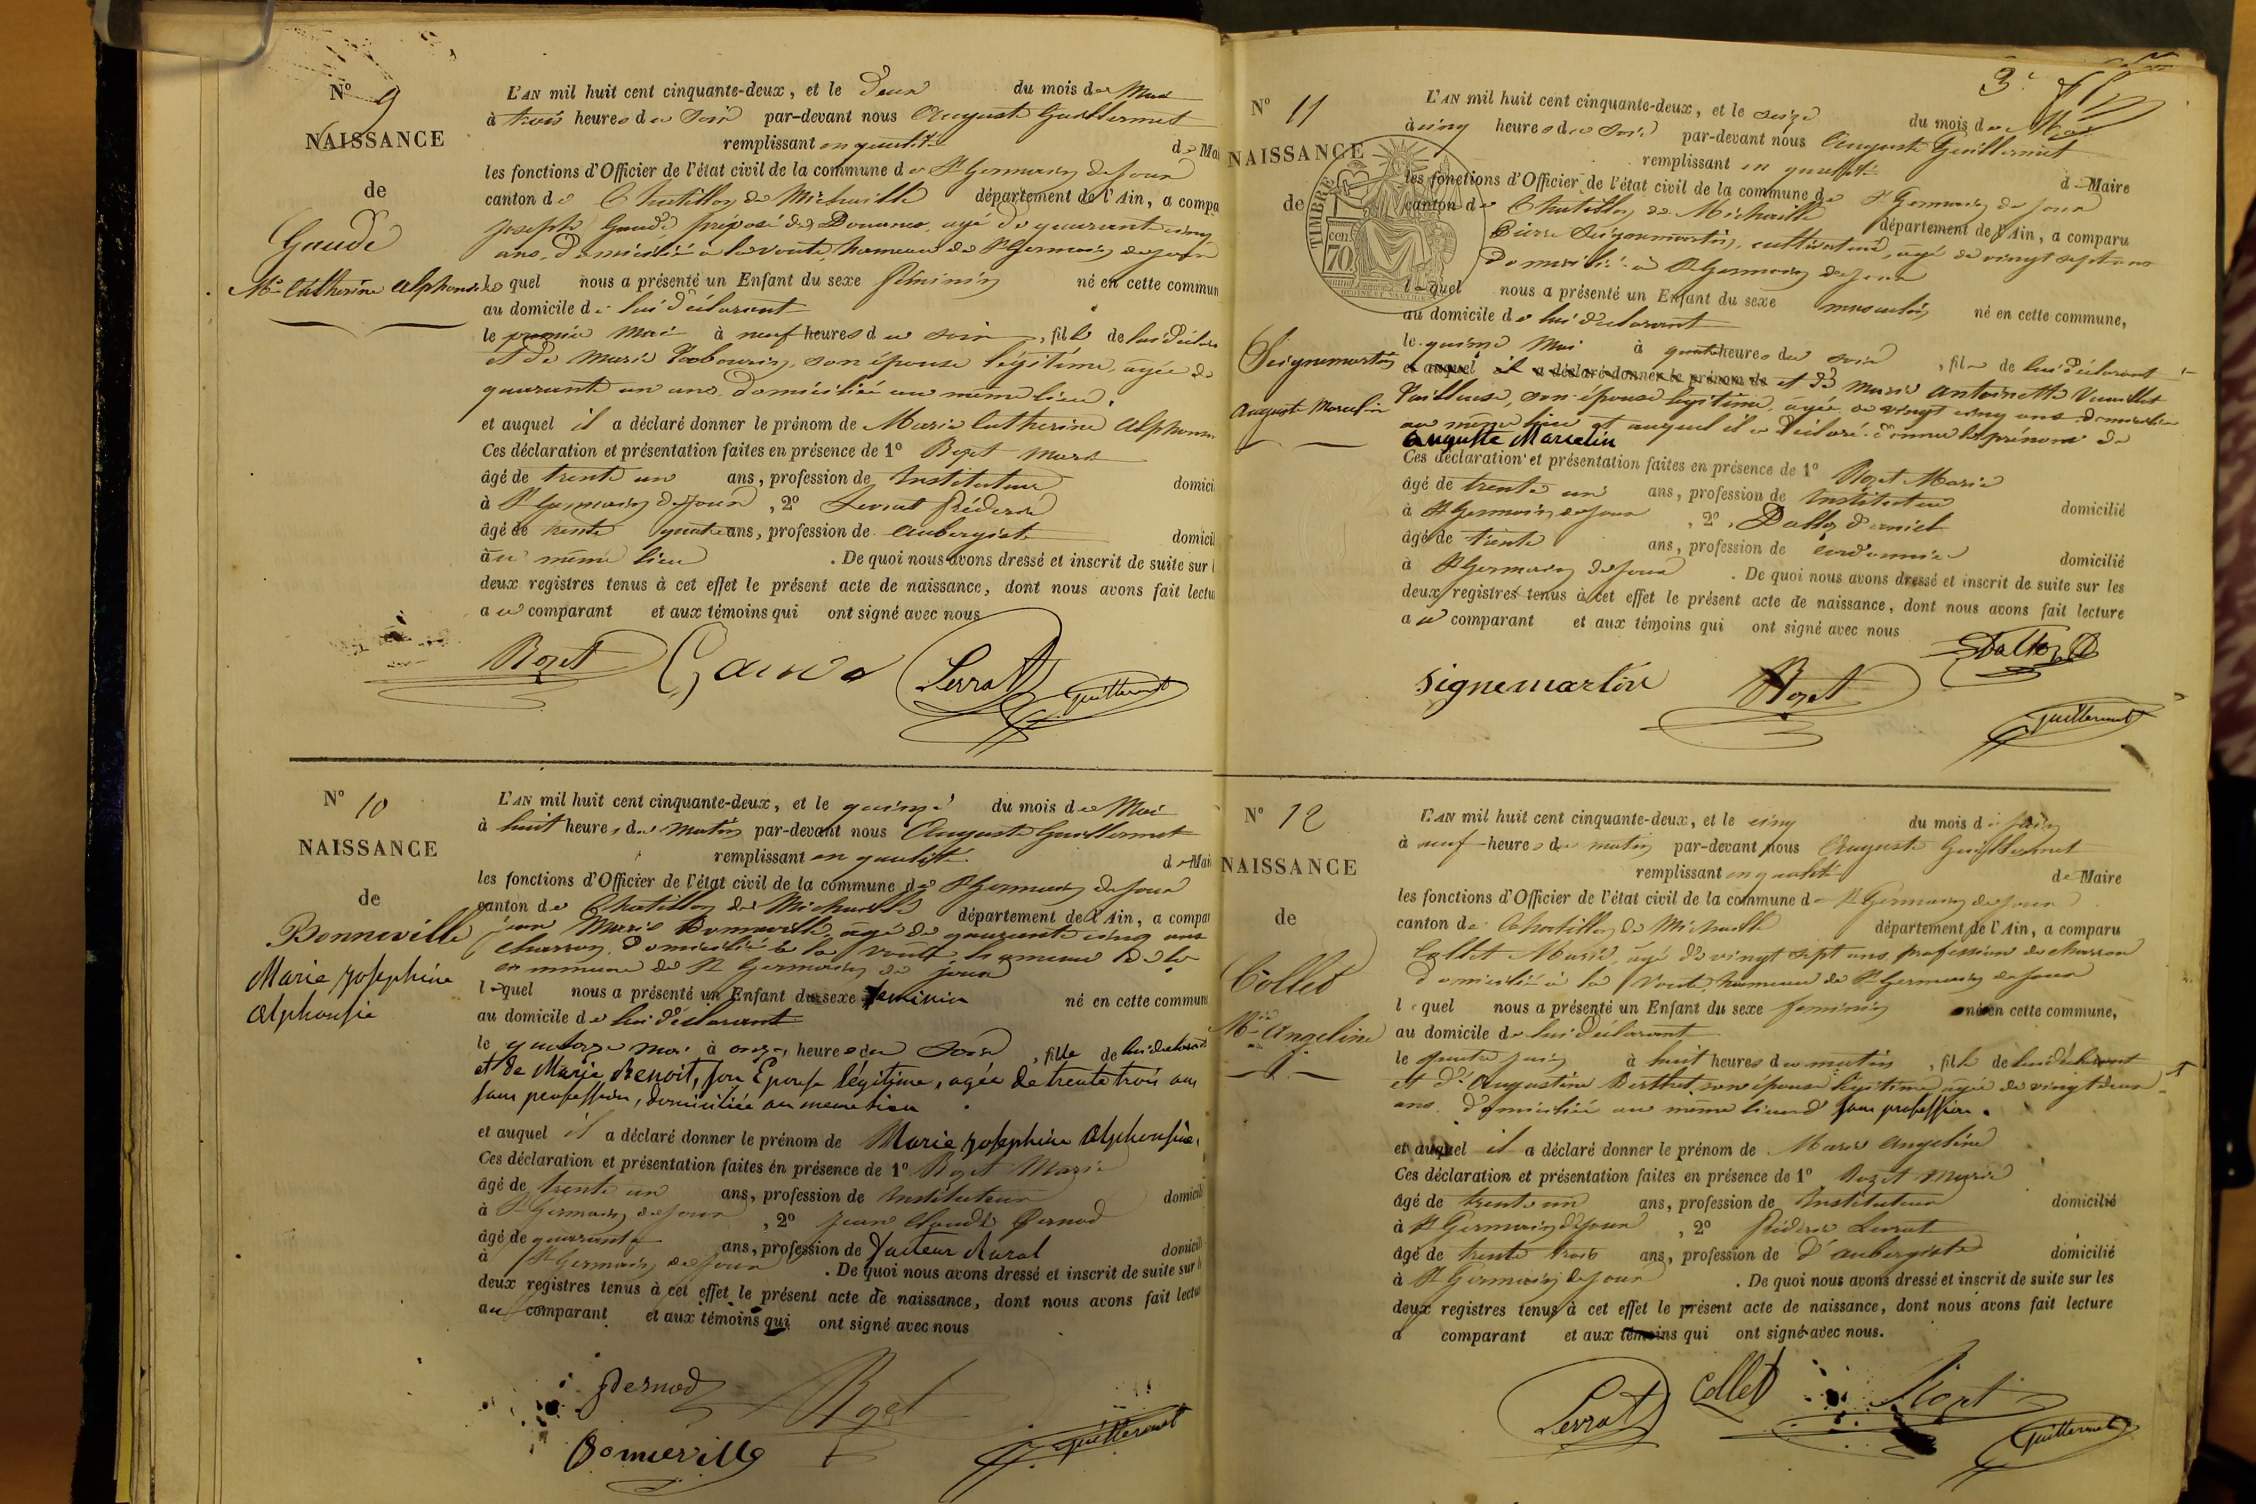 N° 9
NAISSANCE
de
Gaudé
Mie Catherine Alphonsine
L'AN mil huit cent cinquante-deux, et le deux du mois de Mai
à trois heures du soir par-devant nous Auguste Guillermet
remplissant en qualité de Mai
les fonctions d'Officier de l'état civil de la commune de St Germain de Joux
canton de Chatillon de Michaille département de l'Ain, a compa
Joseph Gaudé préposé des Douanes, agé de quarante cinq
ans, domicilié à la voute, hameau de St Germain de joux
lequel nous a présenté un Enfant du sexe féminin né en cette commun
au domicile de lui déclarant
le premier mai à neuf heures du soir, fille de lui déclara
et de Marie , son épouse légitime, agée de
quarante un ans domiciliée au même lieu.
et auquel il a déclaré donner le prénom de Marie Catherine Alphonsi
Ces déclaration et présentation faites en présence de 1° Rozet Marie
âgé de trente un ans, profession de Instituteur domicil
à St Germain de Joux, 2° Levrat Fréderic
âgé de trente quatre ans, profession de aubergiste domicil
à au même lieu. De quoi nous avons dressé et inscrit de suite sur l
deux registres tenus à cet effet le présent acte de naissance, dont nous avons fait lectu
au comparant et aux témoins qui ont signé avec nous
Rozet Gaudé Levrat Guillermet
N° 10
NAISSANCE
de
Bonneville
Marie Josephine
Alphonsie
L'AN mil huit cent cinquante-deux, et le quinze du mois de Mai
à huit heures du matin par-devant nous Auguste Guillermet
remplissant en qualité de Mai
les fonctions d'Officier de l'état civil de la commune de St Germain de Joux
canton de Chatillon de Michaille département de l'Ain, a compa
jean Marie Bonneville, agé de quarante cinq ans
charron, domicilié à la Voute hameau de la
commune de St Germain de joux
lequel nous a présenté un Enfant du sexe feminin né en cette commun
au domicile de lui déclarant
le quatorze mai à onze heures du soir, fille de lui déclarant
et de Marie Benoit, son Epouse légitime, agée de trente trois ans
sans profession, domiciliée au meme lieu
et auquel il a déclaré donner le prénom de Marie Josephine Alphonsie,
Ces déclaration et présentation faites en présence de 1° Rozet Marie
âgé de trente un ans, profession de Instituteur domicili
à St Germain de Joux, 2° Jean Claude Pernod
âgé de quarante ans, profession de Facteur Rural domicili
à St Germain de Joux. De quoi nous avons dressé et inscrit de suite sur l
deux registres tenus à cet effet le présent acte de naissance, dont nous avons fait lectu
au comparant et aux témoins qui ont signé avec nous
Pernod Rozet
Bonneville Guillermet
3e
N° 11
NAISSANCE
de
TIMBRE
cen.
70
Seignemartin
Auguste Marcelin
L'AN mil huit cent cinquante-deux, et le seize du mois de Mai
à cinq heures du soir par-devant nous Auguste Guillermet
remplissant en qualité de Maire
les fonctions d'Officier de l'état civil de la commune de St Germain de Joux
canton de Chatillon de Michaille département de l'Ain, a comparu
Pierre Seignemartin, cultivateur, agé de vingt sept ans
domicilié à St Germain de Joux
lequel nous a présenté un Enfant du sexe masculin né en cette commune,
au domicile de lui déclarant
le quinze Mai à quatre heures du soir, fils de lui déclarant
et auquel il a déclaré donner le prénom de et de Marie Antoinette Vuaillat
Tailleuse, son épouse légitime, agée de vingt cinq ans domiciliée
au même lieu et auquel il a déclaré donner les prénoms de
Auguste Marcelin
Ces déclaration et présentation faites en présence de 1° Rozet Marie
âgé de trente un ans, profession de Instituteur domicilié
à St Germain de Joux, 2°
âgé de trente ans, profession de cordonnier domicilié
à St Germain de Joux. De quoi nous avons dressé et inscrit de suite sur les
deux registres tenus à cet effet le présent acte de naissance, dont nous avons fait lecture
au comparant et aux témoins qui ont signé avec nous
Signemartin Rozet
Guillermet
N° 12
NAISSANCE
de
Collet
Mie Angeline
L'AN mil huit cent cinquante-deux, et le cinq du mois de juin
à neuf heures du matin par-devant nous Auguste Guillermet
remplissant en qualité de Maire
les fonctions d'Officier de l'état civil de la commune de St Germain de Joux
canton de Chatillon de Michaille département de l'Ain, a comparu
Collet Marie, agé de vingt sept ans profession de charron
domicilié à la Voute hameau de St Germain de Joux
lequel nous a présenté un Enfant du sexe feminin né en cette commune,
au domicile de lui déclarant
le quatre juin à huit heures du matin, fille de lui déclarant
et d'Augustine Berthet, son épouse légitime, agée de vingt deux
ans, domiciliée au même lieu sans profession.
et auquel il a déclaré donner le prénom de Marie Angeline
Ces déclaration et présentation faites en présence de 1° Rozet Marie
âgé de trente un ans, profession de Instituteur domicilié
à St Germain de Joux, 2° Fréderic Levrat
âgé de trente trois ans, profession d'aubergiste domicilié
à St Germain de Joux. De quoi nous avons dressé et inscrit de suite sur les
deux registres tenus à cet effet le présent acte de naissance, dont nous avons fait lecture
a comparant et aux témoins qui ont signé avec nous.
Levrat Collet Rozet
Guillermet